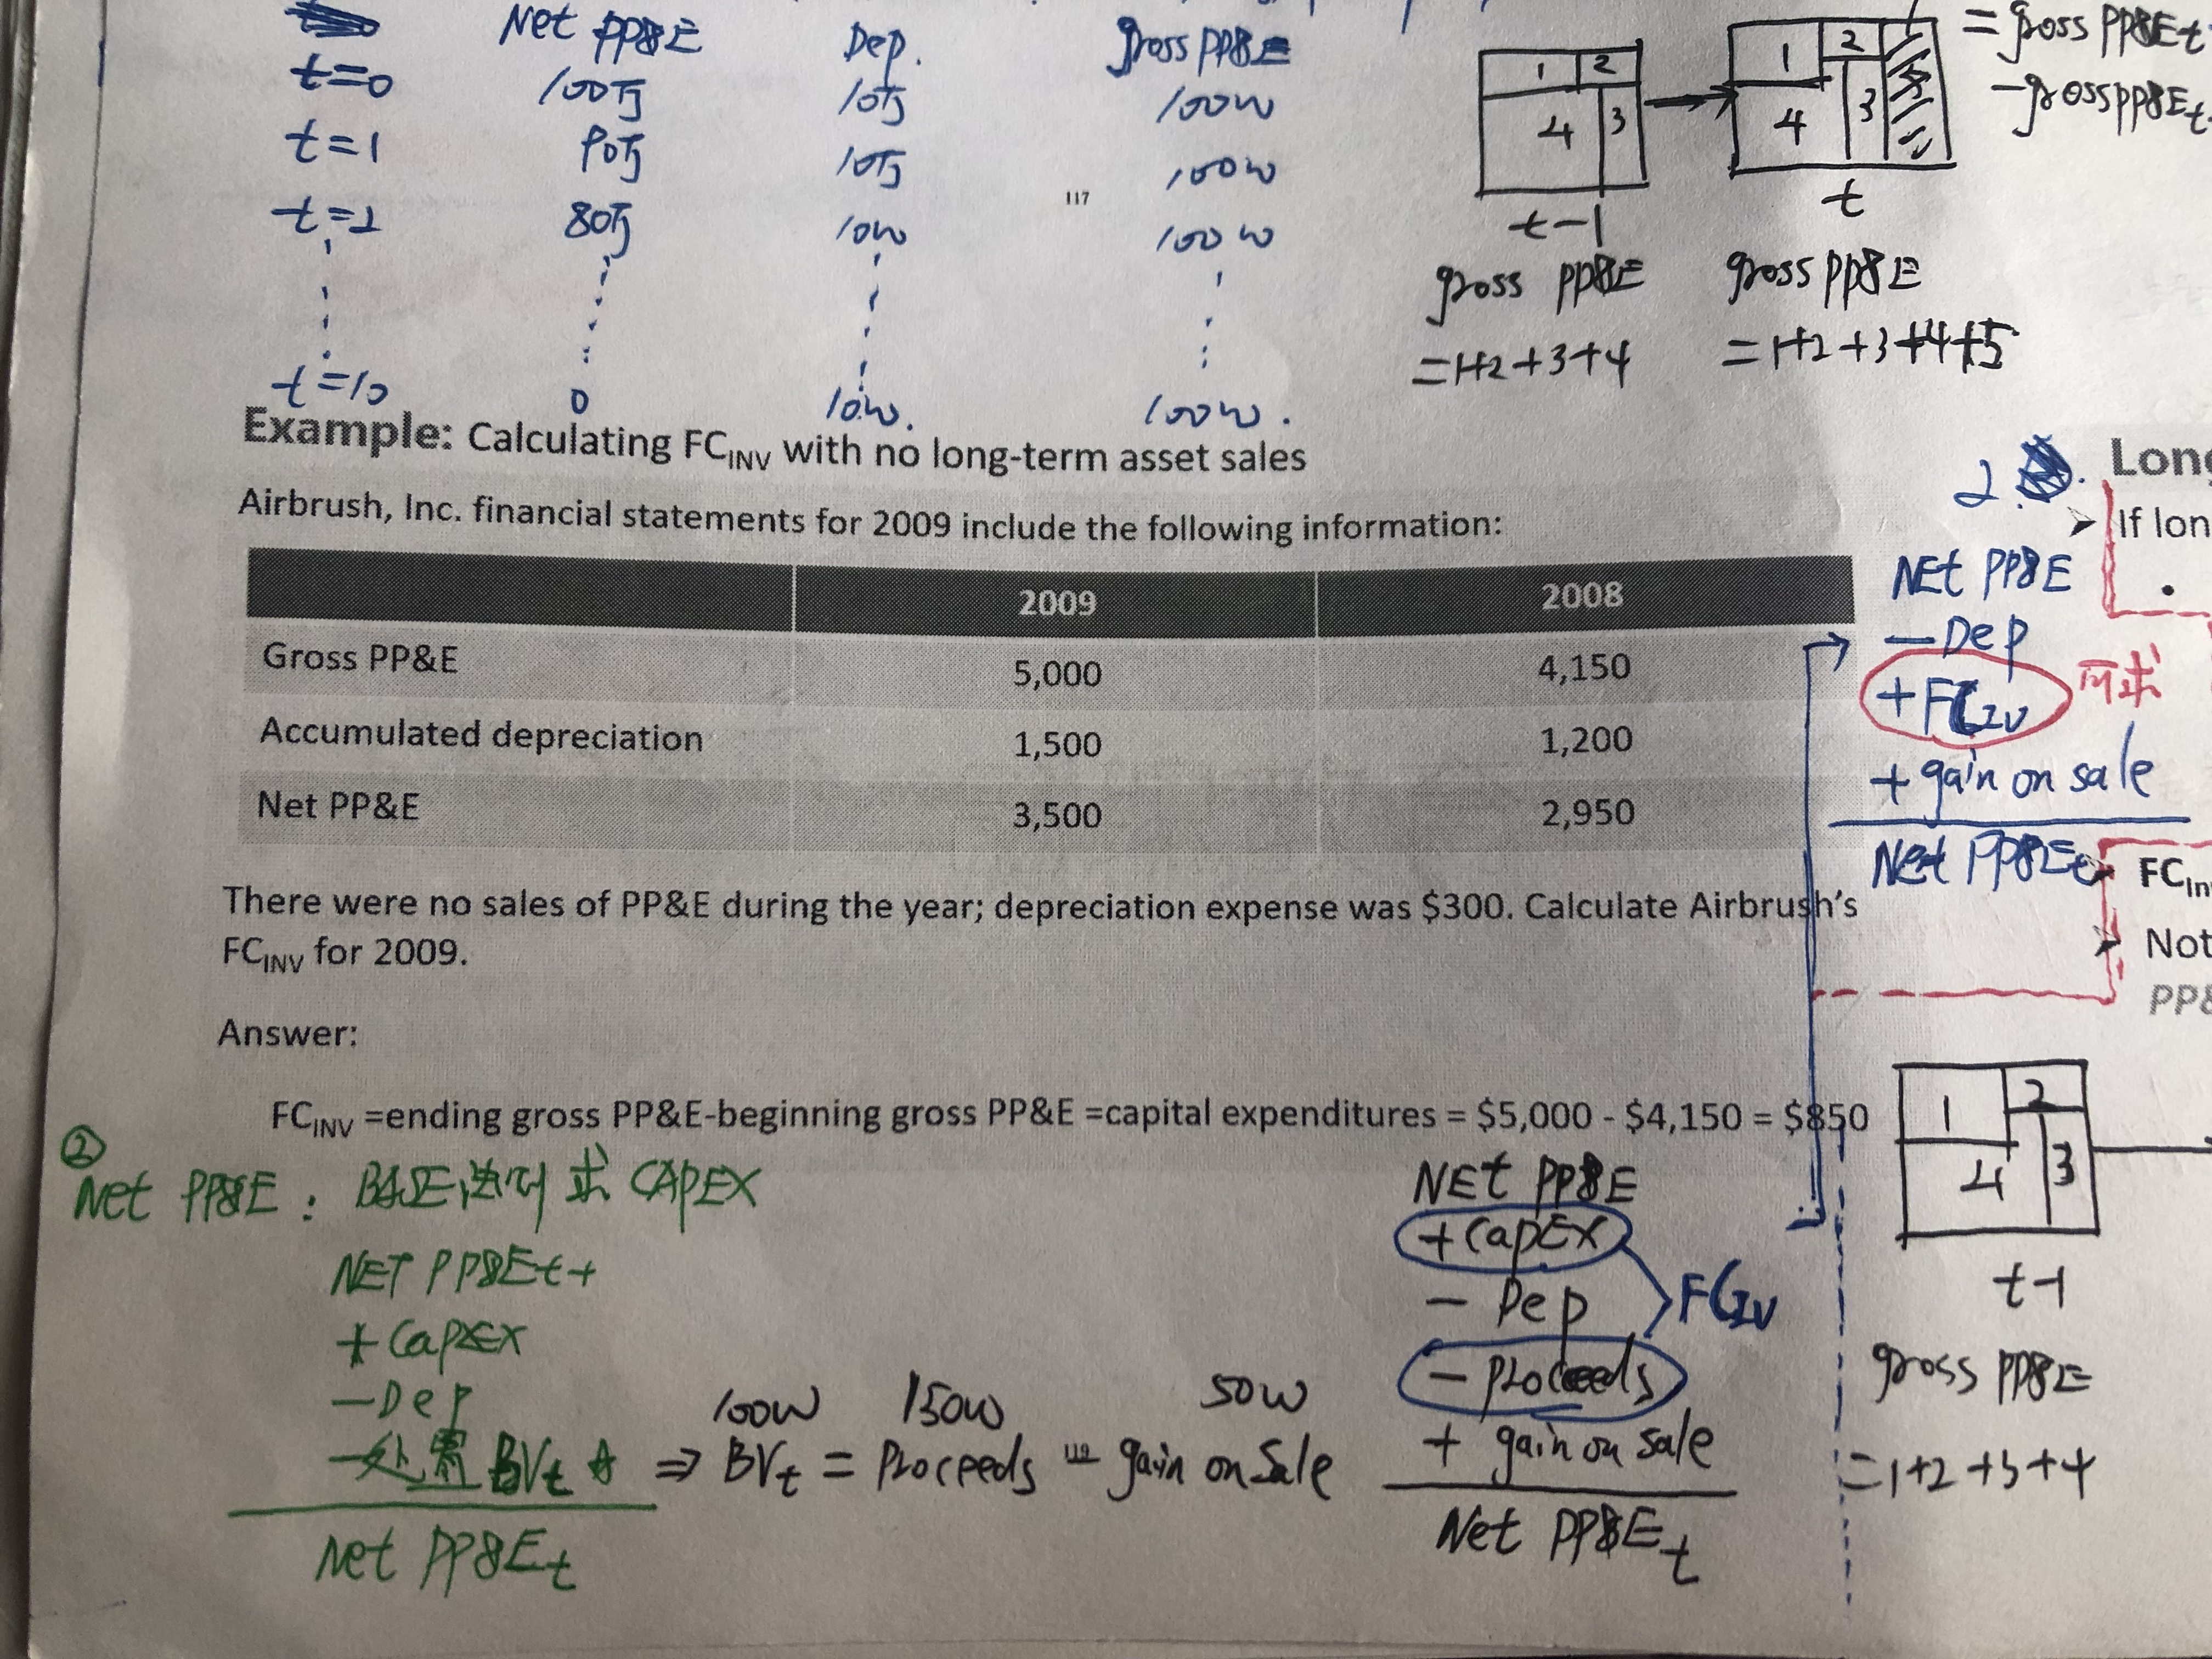 Net PP&E Dep. gross PP&E
t=0 100万 10万 100w
t=1 90万 10万 100w
t=2 80万 10w 100w
t=10 0 10w. 100w.
117
1 2
4 3
t-1
gross PP&E
=1+2+3+4
1 2
4 3 5
t
gross PP&E
=1+2+3+4+5
=gross PP&Et
-gross PP&Et
Example: Calculating FCINV with no long-term asset sales
Airbrush, Inc. financial statements for 2009 include the following information:
2009 2008
Gross PP&E 5,000 4,150
Accumulated depreciation 1,500 1,200
Net PP&E 3,500 2,950
There were no sales of PP&E during the year; depreciation expense was $300. Calculate Airbrush's
FCINV for 2009.
Answer:
FCINV =ending gross PP&E-beginning gross PP&E =capital expenditures = $5,000 - $4,150 = $850
② Net PP&E: BASE法则 求 CAPEX
NET PP&Et-1
+CapEX
-Dep
-处置 BVt
Net PP&Et
100W 150W 50W
⇒ BVt = Proceeds - gain on Sale
NET PP&E
+CapEX
- Dep
- Proceeds
FCInv
+ gain on sale
Net PP&Et
2.
Long
If lon
NET PP&E
-Dep
+FCInv 可求
+ gain on sale
Net PP&Et
FCIn
Not
PP&
1 2
4 3
t-1
gross PP&E
=1+2+3+4